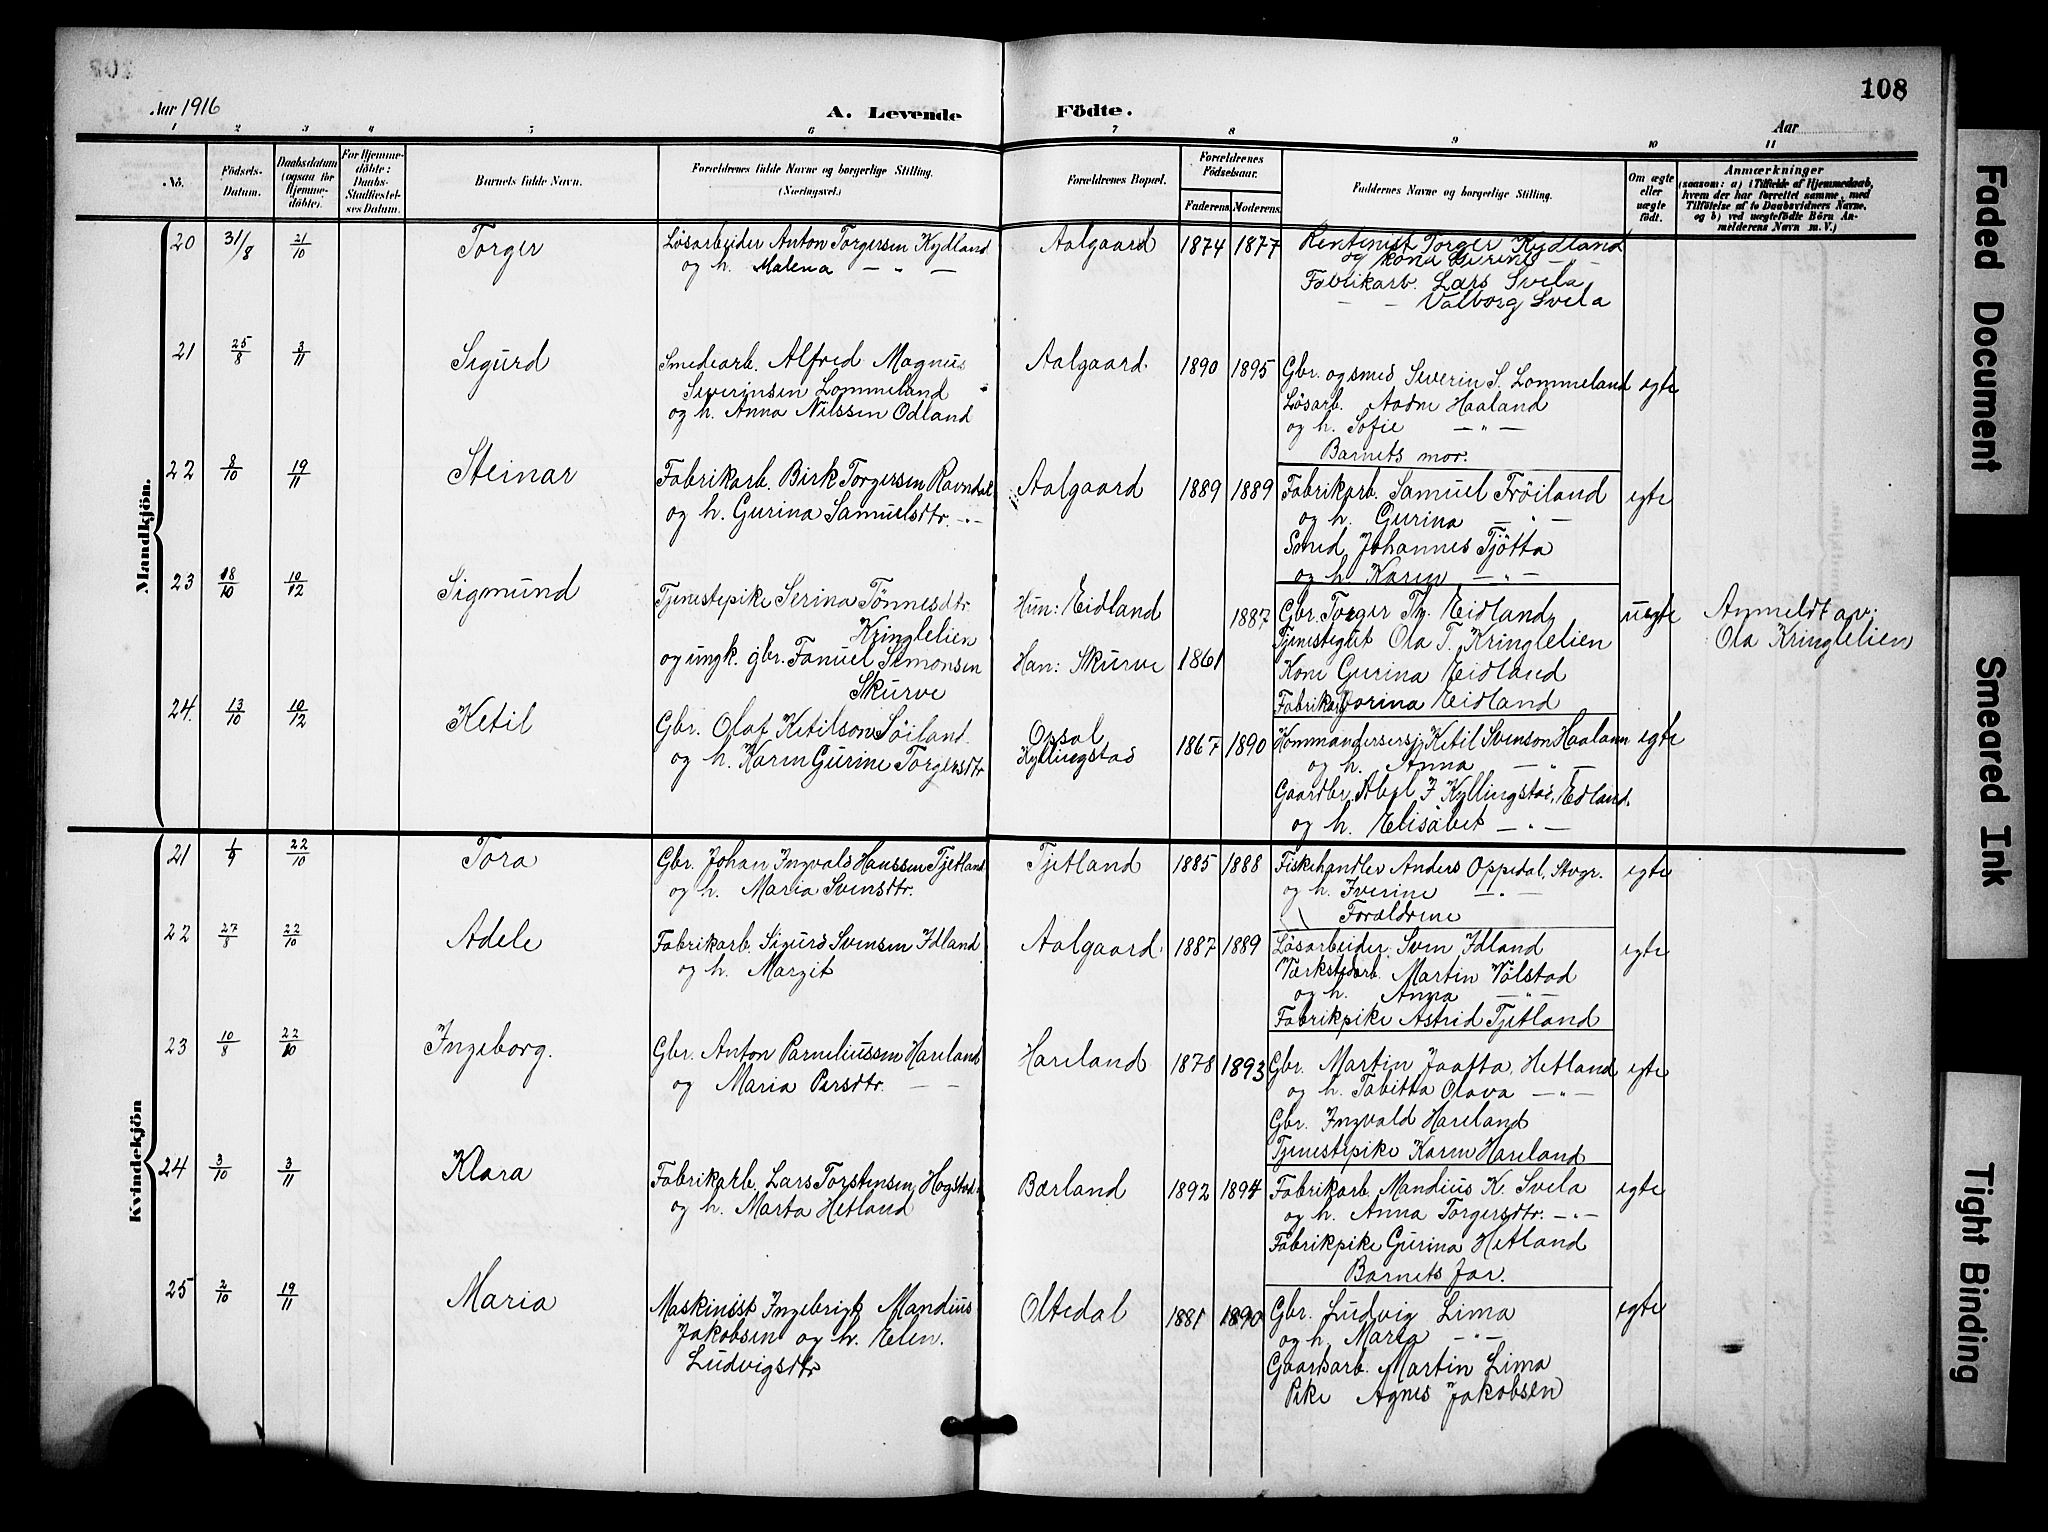 108
Aar 1916
A. Levende Födte.
Aar
1 2 3 4 5 6 7 8 9 10 11
No.
Födsels-Datum.
Daabsdatum (ogsaa for Hjemme-döbte).
For Hjemme-döbte: Daabs-Stadfæstel-ses Datum.
Barnets fulde Navn.
Forældrenes fulde Navne og borgerlige Stilling. (Næringsvei.)
Forældrenes Bopæl.
Forældrenes Födselsaar.
Faderens. Moderens.
Faddernes Navne og borgerlige Stilling.
Om ægte eller uægte födt.
Anmærkninger
(saasom: a) i Tilfælde af Hjemmedaab, hvem der har forrettet samme, med Tilföielse af to Daabsvidners Navne, og b) ved uægtefödte Börn An-melderens Navn m. V.)
Mandkjön.
20 31/8 21/10 Torger
Løsarbeider Anton Torgersen Kydland
og h. Malena — " —
Aalgaard 1874 1877
Rentenist Torger Kydland
og kone Berine — " —
Fabrikarb. Lars Svela
— - Valborg Svela
21 25/8 3/11 Sigurd
Smedearb. Alfred Magnus
Severinsen Lommeland
og h. Anna Nilssen Odland
Aalgaard. 1890 1895
Gbr. og smed Severin S. Lommeland egte
Løsarb. Aadne Haaland
og h. Sofie — " —
Barnets mor.
22 8/10 19/11 Steinar
Fabrikarb. Birk Torgersen Ravndal
og h. Gurina Samuelsdtr. — " —
Aalgaard 1889 1889
Fabrikarb. Samuel Tröiland egte
og h. Gurina — " —
Smed Johannes Tjötta
og h. Karen — " —
23 18/10 10/12 Sigmund
Tjenestepike Serina Tönnesdtr.
Kringlelien
og ungk. gbr. Fanuel Simonsen
Skurve
Hun: Eidland 1887
Han: Skurve 1861
Gbr. Torger Th. Eidland, uegte
Tjenestegut Ola T. Kringlelien
Kone Gurina Eidland
Fabrikarb. Eidland
Anmeldt av:
Ola Kringlelien
24. 13/10 10/12 Ketil
Gbr. Olaf Ketilson Söiland
og h. Karen Gurine Torgersdtr
Opsal
Kyllingstad 1867 1890
Kommandersersj. Ketil Svenson Haaland egte
og h. Anna — " —
Gaardbr. Abel J Kyllingstad, Edland.
og h. Elisabet — " —
Kvindekjön
21 1/9 22/10 Tora
Gbr. Johan Ingvald Hanssen Tjetland
og h. Maria Svensdtr.
Tjetland 1885 1888
Fiskehandler Anders Oppedal, Stvgr. egte
og h. Iverine — " —
Forældrene
22 27/8 22/10 Adele
Fabrikarb. Sigurd Svensen Idland
og h. Margit
Aalgaard. 1887 1889
Løsarbeider Sven Idland egte
Værkstedarb. Martin Vølstad
og h. Anna — " —
Fabrikpike Astrid Tjetland
23 10/8 22/10 Ingeborg.
Gbr. Anton Parneliussen Hareland
og Maria Persdtr. — —
Hareland 1878 1893
Gbr. Martin Jaatta, Hetland egte
og h. Tabitta Olava — " —
Gbr. Ingvald Hareland
Tjenestepike Karen Hareland
24 3/10 3/11 Klara
Fabrikarb. Lars Torstensen Hogstad.
og h. Marta Hetland
Bærland 1892 1894
Fabrikarb. Mandius K. Svela egte
og h. Anna Torgersdtr. — " —
Fabrikpike Gurina Hetland
Barnets far.
25 2/10 19/11 Maria
Maskinist Ingebrigt Mandius
Jakobsen og h. Elen.
Ludvigsdtr
Oltedal 1881 1890
Gbr. Ludvig Lima egte
og h. Maria — " —
Gaardarb. Martin Lima
Pike Agnes Jakobsen
Faded Document
Smeared Ink
Tight Binding